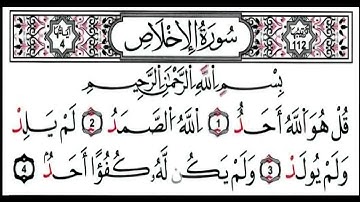 آياتها ٤ سُورَةُ الإِخْلَاصِ ترتيبها ١١٢
بِسْمِ اللَّهِ الرَّحْمَٰنِ الرَّحِيمِ
قُلْ هُوَ اللَّهُ أَحَدٌ 1 اللَّهُ الصَّمَدُ 2 لَمْ يَلِدْ
وَلَمْ يُولَدْ 3 وَلَمْ يَكُن لَّهُۥ كُفُوًا أَحَدٌۢ 4